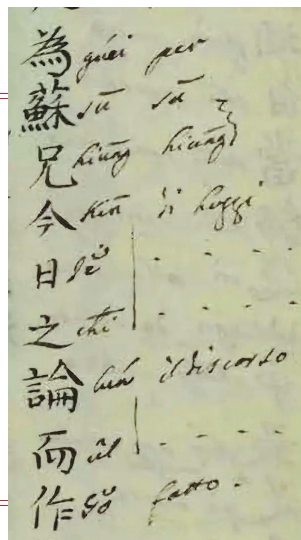 為 guéi per
蘇 sū sū
兄 hiūng hiūng
今 kīn di hoggi
日 jĕ
之 chī
論 lún il discorso
而 ûl
作 çŏ fatto.